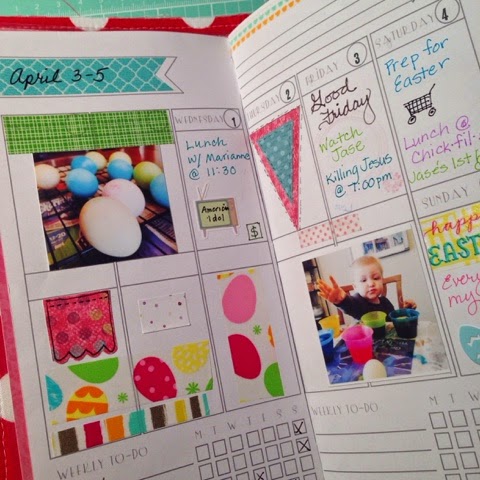 April 3-5
WEDNESDAY 1
Lunch
w/ Marianne
@ 11:30
American
Idol
$
WEEKLY TO-DO
M T W T F S S
THURSDAY 2
FRIDAY 3
Good
Friday
Watch
Jase
Killing Jesus
@ 7:00pm
SATURDAY 4
Prep for
Easter
Lunch @
Chick-fil-
Jase's 1st
SUNDAY
happy
EASTE
Every
my
WEEKLY TO-DO
M T W